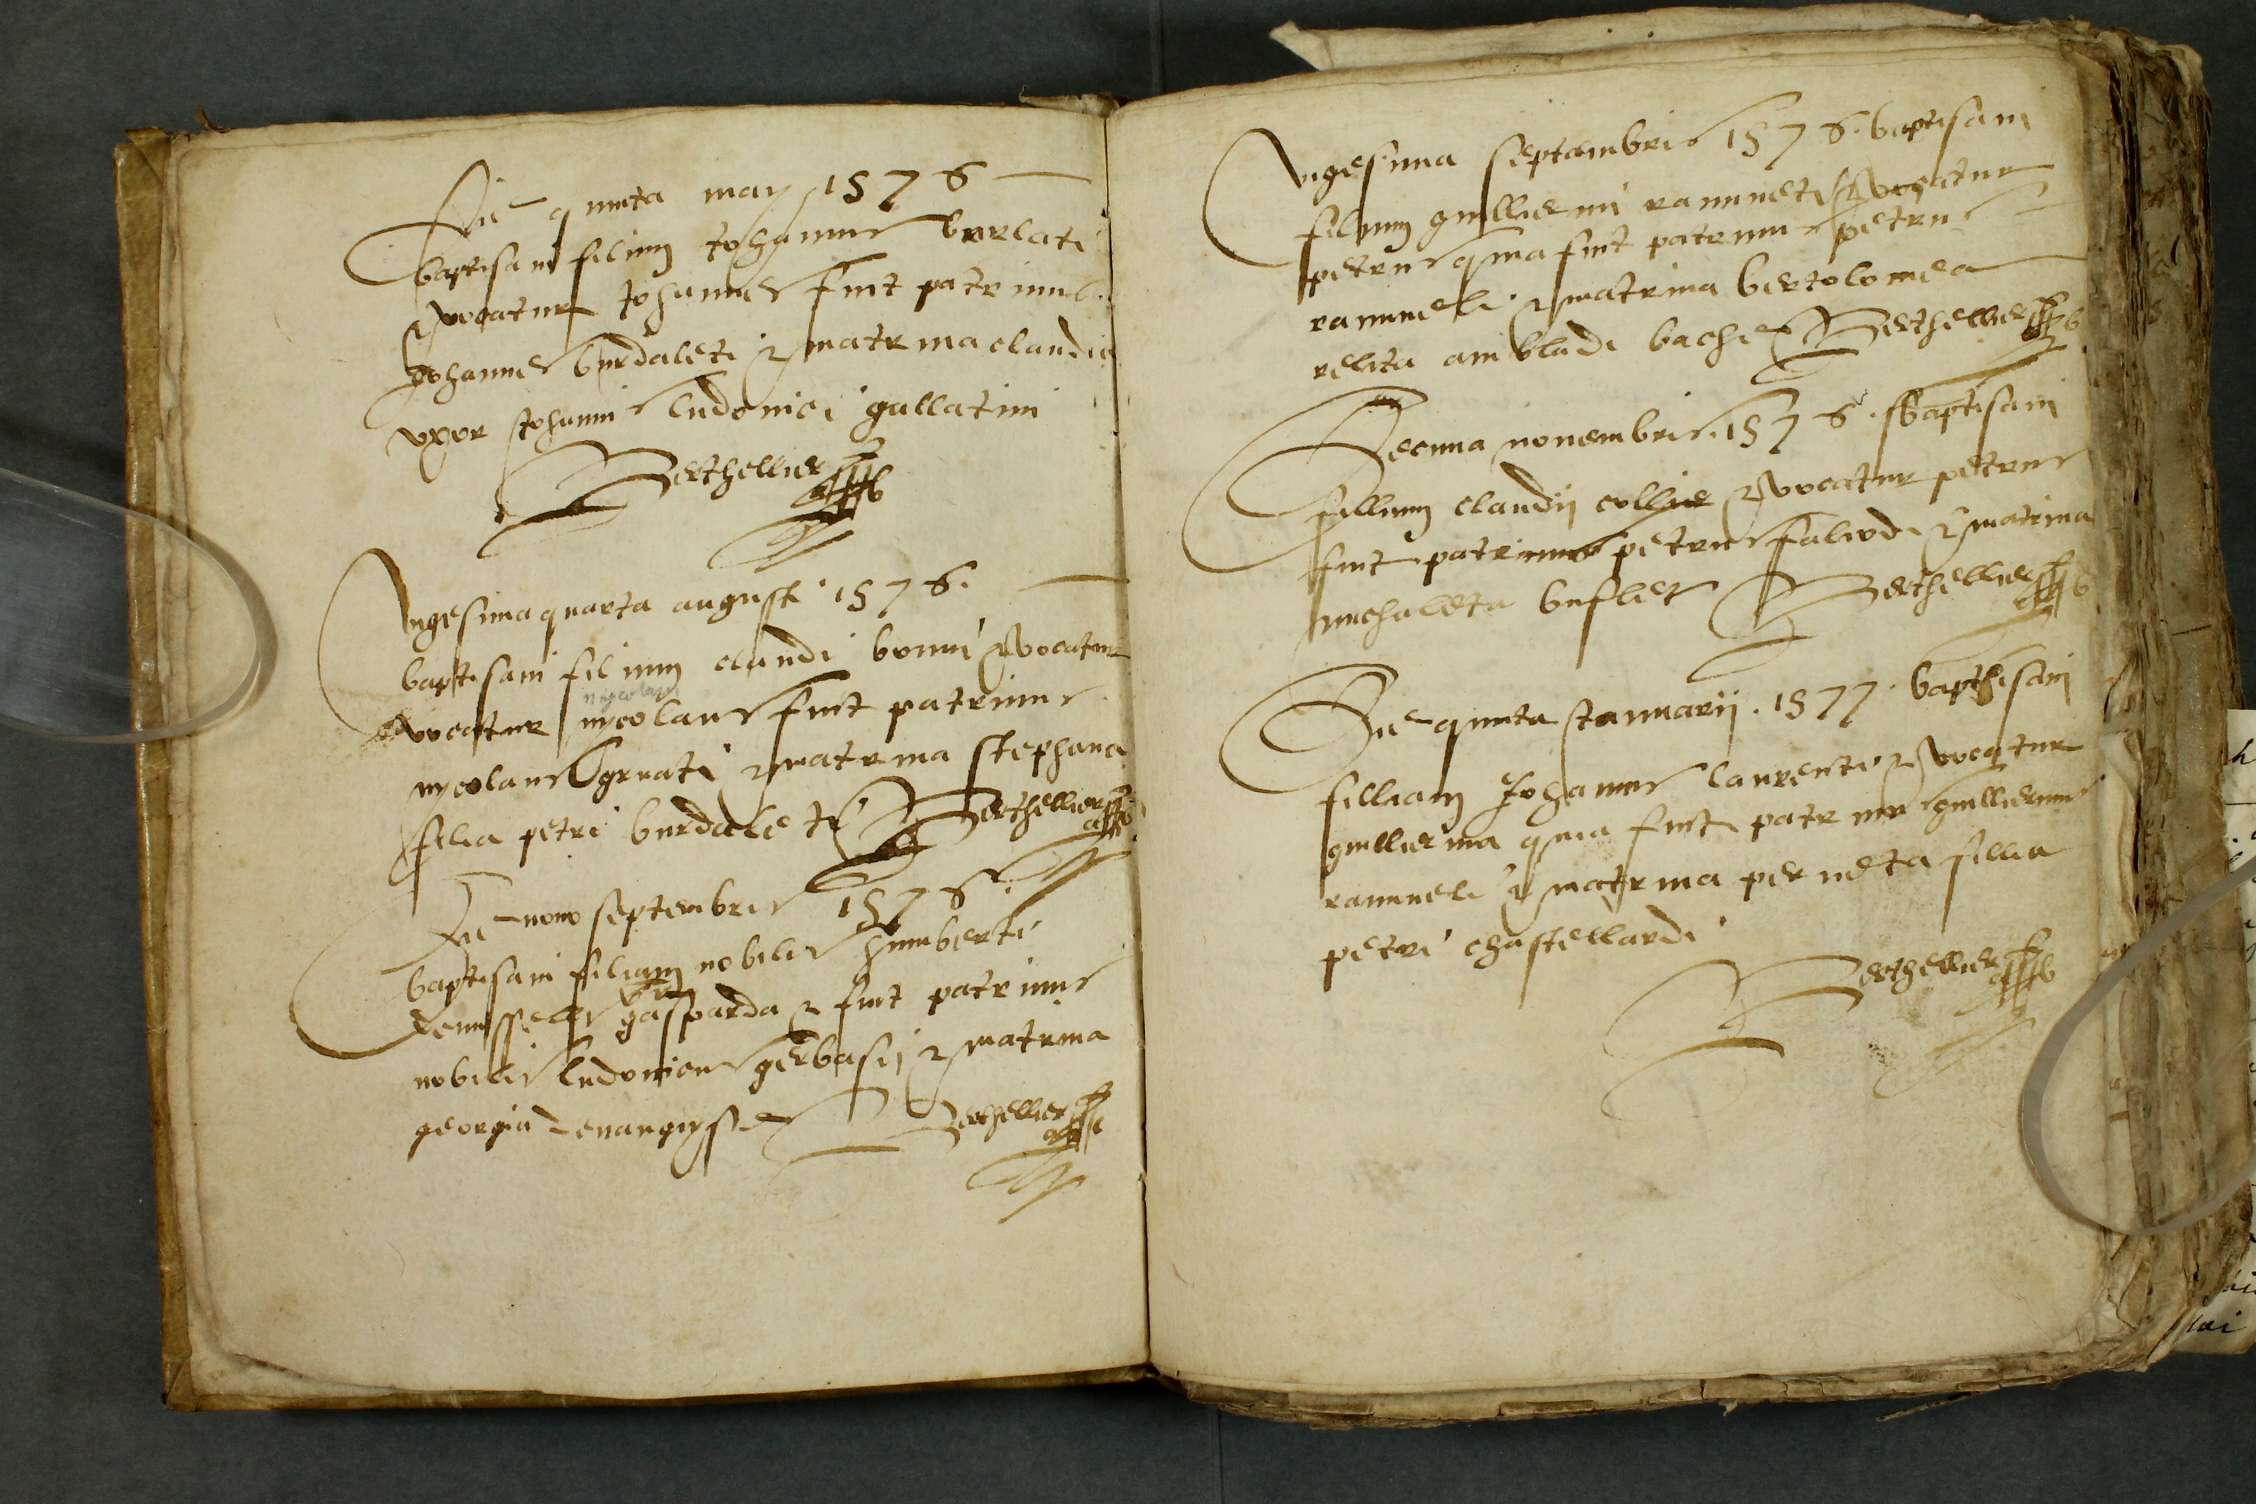 Die quinta may 1576
baptisavi filium Johannis borlati
et vocatur Johannes fuit patrinus
Johannes burdaleti et matrina claudia
uxor Johanni ludovici gallatini
Berthellier
Vigesima quarta augusti 1576.
baptisavi filium claudi bonni et vocatur
vocatur nycolaus fuit patrinus
nycolaus gruati et matrina stephana
filia petri burdaleti Berthellier
Die nono septembris 1576.
baptisavi filiam nobilis humberti
gasparda et fuit patrinus
nobilis ludovicus gerbasii et matrina
georgia Berthellier
Vigesima septembris 1576. baptisavi
filium guillermi ramuneti et vocatur
petrus quia fuit patrinus petrus
ramuneli et matrina bertolomea
relita ambladi bache Berthellier
Decima novembris. 1576. baptisavi
fillium claudii collier et vocatur petrus
fuit patrinus petrus faliodi et matrina
michaleta buflet Berthellier
Die quinta Januarii. 1577. bapthisavi
filliam Johannis laurenti et vocatur
guillierma quia fuit patrinus guilliermus
ramuneli et matrina perneta fillia
petri chastellardi
Berthellier